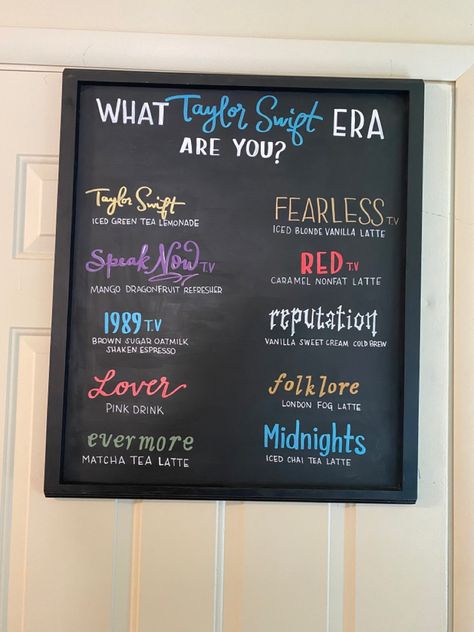 WHAT Taylor Swift ERA
ARE YOU?
Taylor Swift
ICED GREEN TEA LEMONADE
FEARLESS T.V
ICED BLONDE VANILLA LATTE
SPEAK NOW T.V
MANGO DRAGONFRUIT REFRESHER
RED T.V
CARAMEL NONFAT LATTE
1989 T.V
BROWN SUGAR OATMILK
SHAKEN ESPRESSO
reputation
VANILLA SWEET CREAM COLD BREW
Lover
PINK DRINK
folklore
LONDON FOG LATTE
evermore
MATCHA TEA LATTE
Midnights
ICED CHAI TEA LATTE